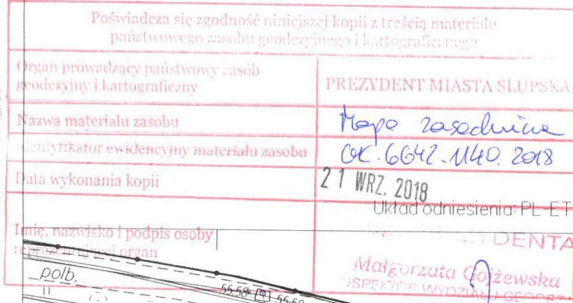 Poświadcza się zgodność niniejszej kopii z treścią materiału
państwowego zasobu geodezyjnego i kartograficznego
Organ prowadzący państwowy zasób
geodezyjny i kartograficzny
PREZYDENT MIASTA SŁUPSKA
Nazwa materiału zasobu
Mapa zasadnicza
identyfikator ewidencyjny materiału zasobu
GK.6642.1140.2018
Data wykonania kopii
21 WRZ. 2018
Układ odniesienia: PL-ET
Imię, nazwisko i podpis osoby
organ
DENTA
Małgorzata Gojżewska
INSPEKTOR
polb.
55.58
55.68